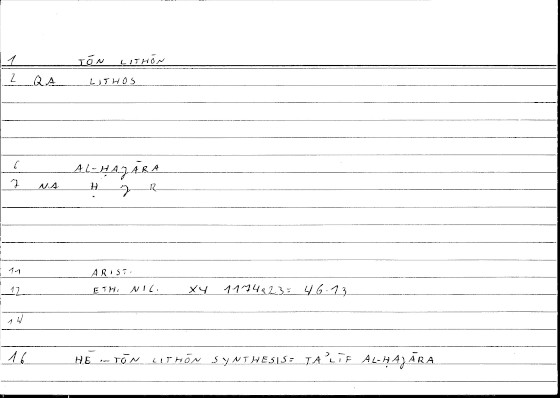 1 TŌN LITHŌN
2 QA LITHOS
6 AL-ḤAJĀRA
7 NA Ḥ J R
11 ARIST.
12 ETH. NIC. X4 1174a23= 46.13
14
16 HĒ ... TŌN LITHŌN SYNTHESIS= TAʾLĪF AL-ḤAJĀRA